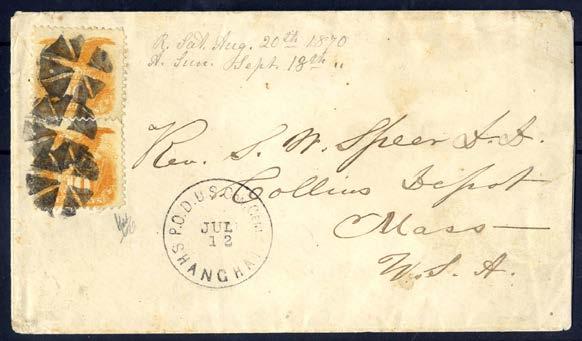 R. Sat. Aug. 20th 1870
A. Sun. Sept. 18th "
Rev. S. W. Speer D.D.
Collins Depot
Mass—
U.S.A.
P.O.D.U.S. CON. GENL
JUL
12
SHANGHAI